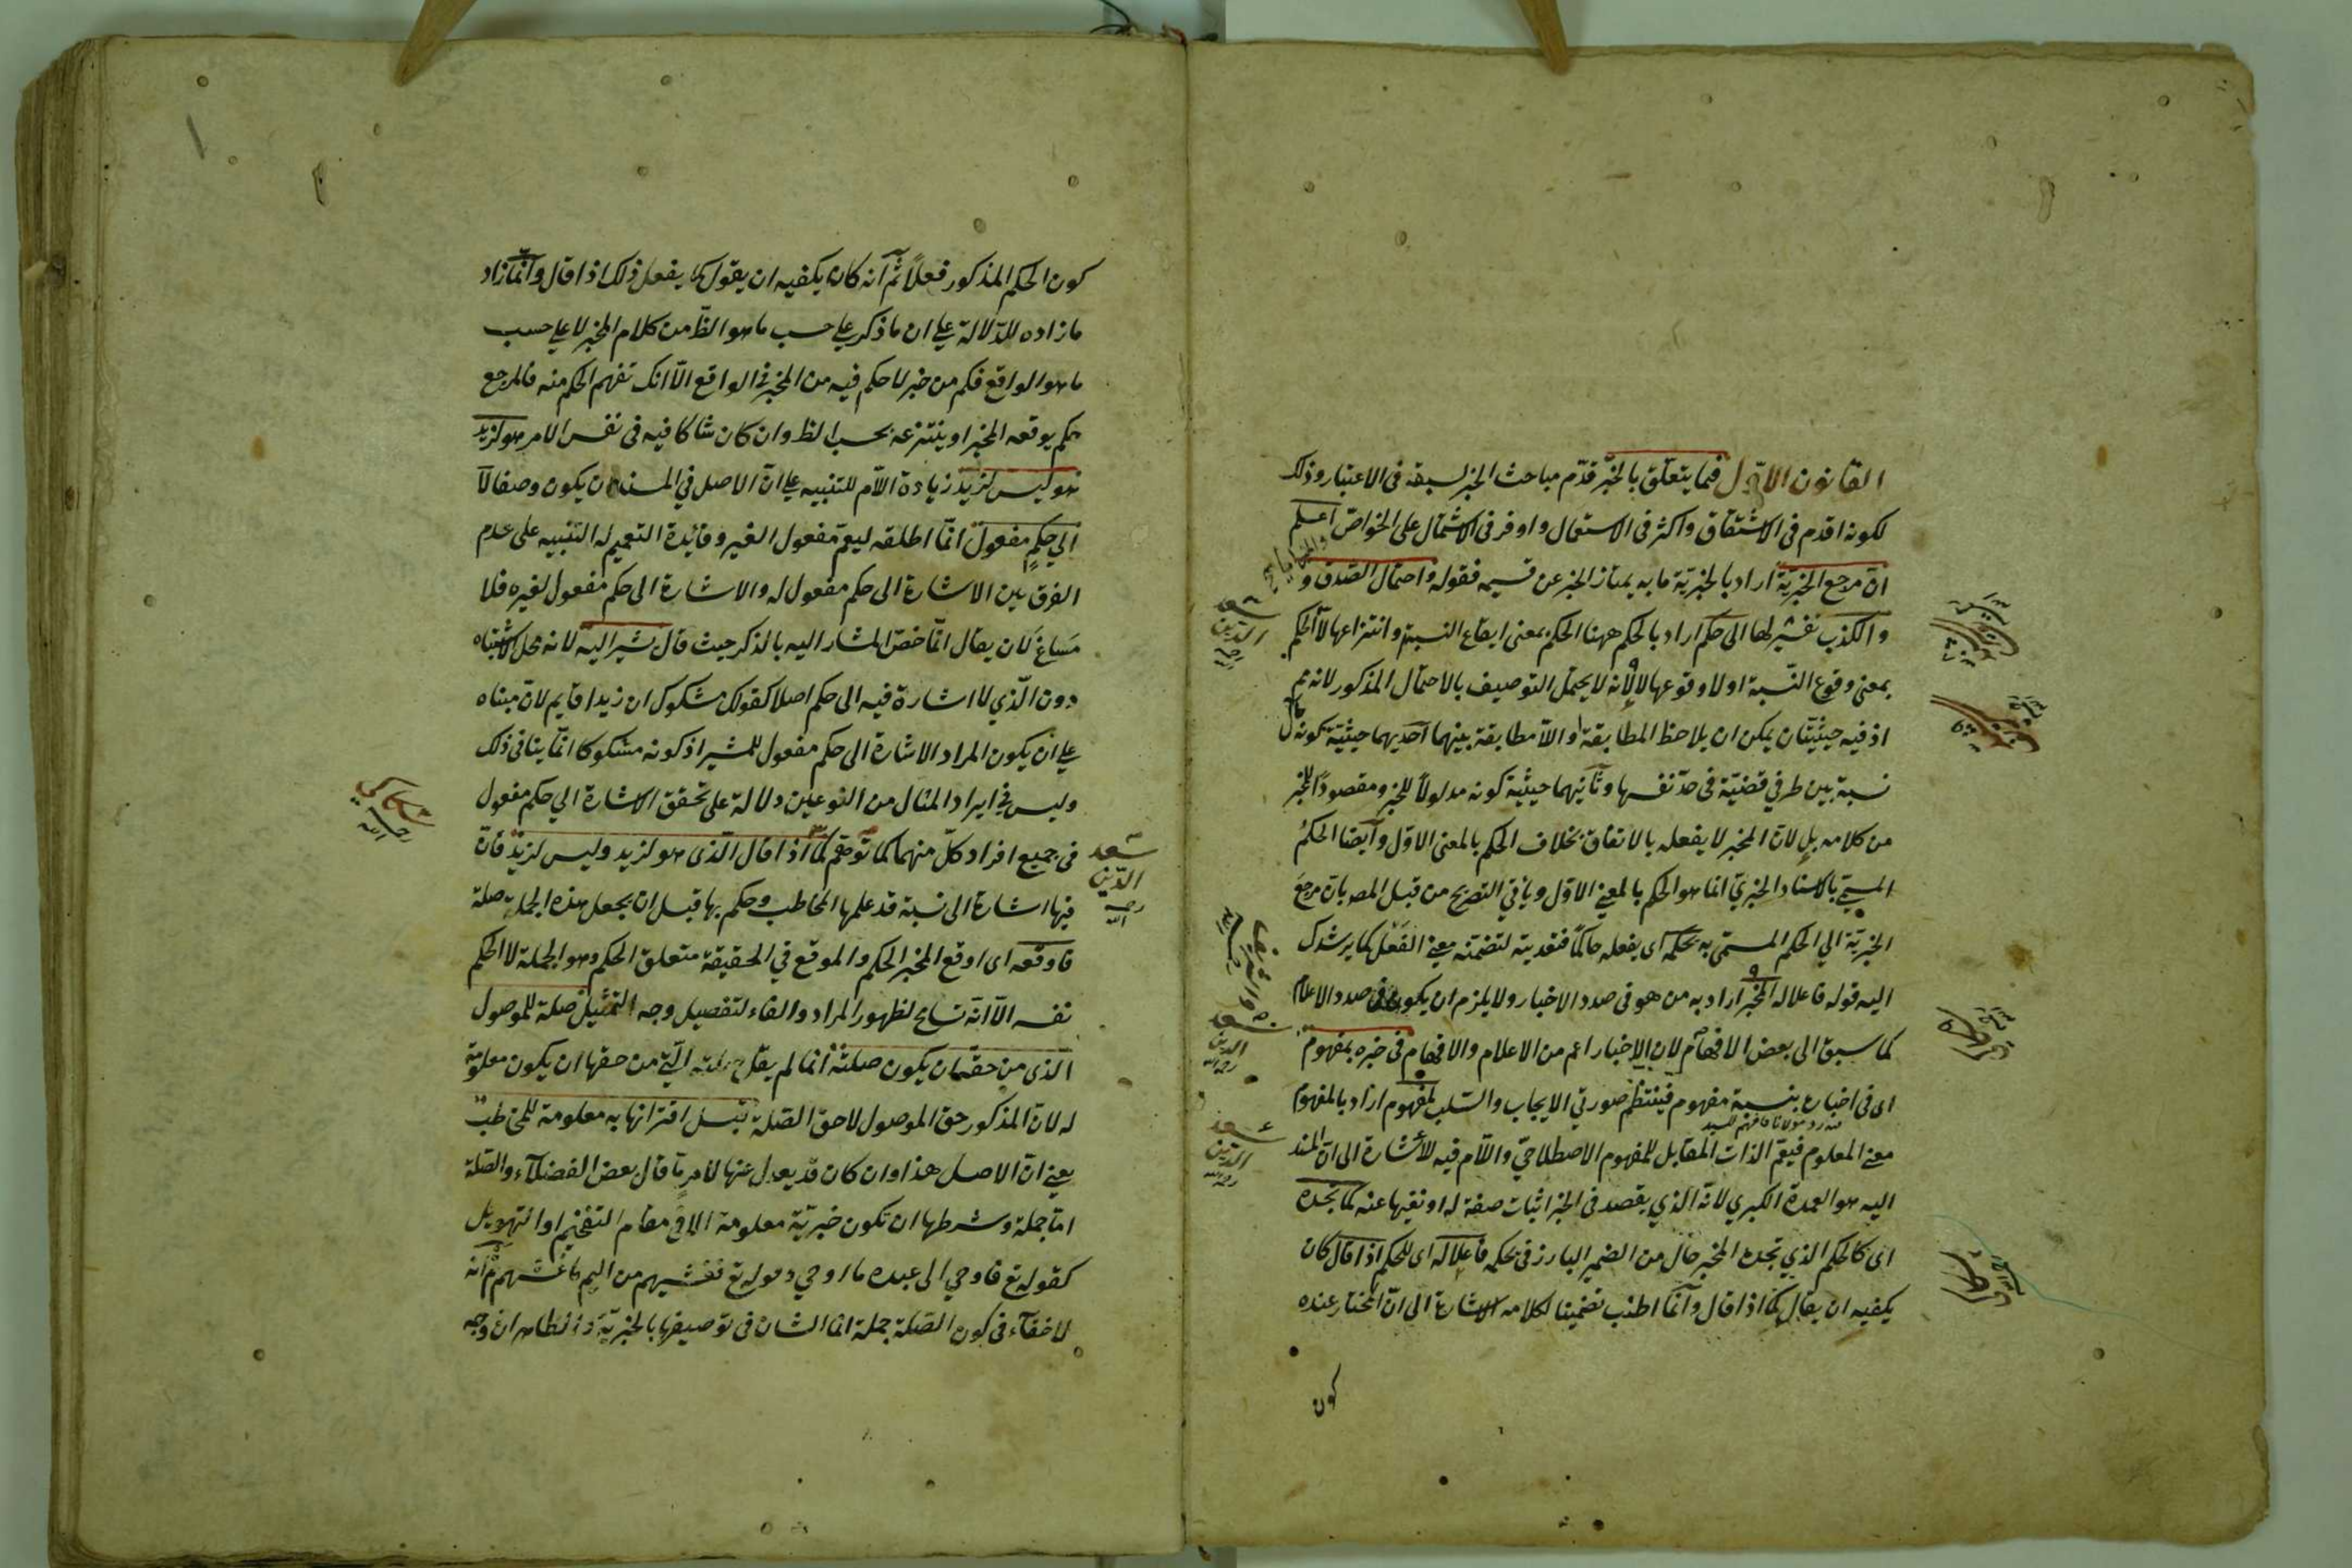 القانون الاول فيما يتعلق بالخبر قدم مباحث الخبر لسبقه فى الاعتبار وذلك
لكونه اقدم فى الاشتقاق واكثر فى الاستعمال واوفر فى الاشتمال على الخواص اعلم
ان مرجع الخبرية اراد بالخبرية ما به يمتاز الخبر عن قسيمه فقوله واحتمال الصدق و
والكذب تفسير لها الى حكم اراد بالحكم ههنا الحكم بمعنى ايقاع النسبة وانتزاعها لا الحكم
بمعنى وقوع النسبة او لا وقوعها لا لانه لا يحتمل التوصيف بالاحتمال المذكور لانه
اذ فيه حيثيتان يمكن ان يلاحظ المطابقة واللا مطابقة بينهما احديهما حيثية كونه
نسبة بين طرفي قضية فى حد نفسها وثانيهما حيثية كونه مدلولا للخبر ومقصودا للمخبر
من كلامه بل لان المخبر لا يفعله بالاتفاق بخلاف الحكم بالمعنى الاول وايضا الحكم
المسمى بالاسناد الخبرى انما هو الحكم بالمعنى الاول ويأتي التصريح من قبل المص بان مرجع
الخبرية الي الحكم المسمى به بحكمه اى يفعله حاكما فتعديته لتضمنه معنى الفعل كما يرشدك
اليه قوله فاعلا له المخبر اراد به من هو فى صدد الاخبار ولا يلزم ان يكون فى صدد الاعلام
كما سبق الى بعض الافهام لان الاخبار اعم من الاعلام والافهام فى خبره بمفهوم
اى فى اخباره بنسبة مفهوم فينتظم صورتي الايجاب والسلب لمفهوم اراد بالمفهوم
معنى المعلوم فيعم الذات المقابل للمفهوم الاصطلاحي واللام فيه للاشارة الى ان المسند
اليه هو العمدة الكبرى لانه الذي يقصد فى الخبر اثبات صفة له او نفيها عنه كما تجده
اى كالحكم الذي تجده المخبر حال من الضمير البارز فى بحكمه فاعلا له اى للحكم اذا قال كان
يكفيه ان يقال كما اذا قال وانما اطنب تضمينا لكلامه الاشارة الى ان المختار عنده
كون
سعد
الدين
سعد
الدين
سعد
الدين
كون الحكم المذكور فعلا ثم انه كان يكفيه ان يقول كما يفعل ذلك اذا قال وانما زاد
ما زاده للدلالة على ان ما ذكر على حسب ما هو الظ من كلام المخبر لا على حسب
ما هو الواقع فكم من خبر لا حكم فيه من المخبر فى الواقع الا انك تفهم الحكم منه فالمرجع
حكم يوقعه المخبر او ينتزعه بحسب الظ وان كان شاكا فيه فى نفس الامر هو لزيد
هو ليس لزيد زيادة اللام للتنبيه على ان الاصل في المسند ان يكون وصفا لا
الي حكم مفعول انما اطلقه ليعم مفعول الغير وفائدة التعميم له التنبيه على عدم
الفرق بين الاشارة الى حكم مفعول له والاشارة الى حكم مفعول لغيره فلا
مساغ لان يقال انما خص المشار اليه بالذكر حيث قال يشير اليه لانه محل الاشتباه
دون الذي لا اشارة فيه الى حكم اصلا كقولك مشكوك ان زيدا قايم لان مبناه
على ان يكون المراد الاشارة الى حكم مفعول للمشير اذ كونه مشكوكا انما ينافى ذلك
وليس فى ايراد المثال من النوعين دلالة على تحقق الاشارة الي حكم مفعول
فى جميع افراد كل منهما كما توهم كما اذا قال الذى هو لزيد وليس لزيد فان
فيها اشارة الى نسبة قد علمها المخاطب وحكم بها قبل ان يجعل هذه الجملة صلة
فاوقعه اى اوقع المخبر الحكم والموقع في الحقيقة متعلق الحكم وهو الجملة لا الحكم
نفسه الا انه تسامح لظهور المراد والفاء لتفصيل وجه التمثيل صلة للموصول
الذى من حقه ان يكون صلته انما لم يقل التى من حقها ان يكون معلومة
له لان المذكور حق الموصول لا حق الصلة قبل اقترانها به معلومة للمخاطب
يعنى ان الاصل هذا وان كان قد يعدل عنها لامر ما قال بعض الفضلاء والصلة
اما جملة وشرطها ان تكون خبرية معلومة الا فى مقام التفخيم او التهويل
كقوله تع فاوحي الى عبده ما اوحي وقوله تع فغشيهم من اليم ما غشيهم ثم انه
لا خفاء فى كون الصلة جملة انما الشان فى توصيفها بالخبرية والظاهر ان وجه
سعد
الدين
رحمه
الله
سكاكي
رحمه الله